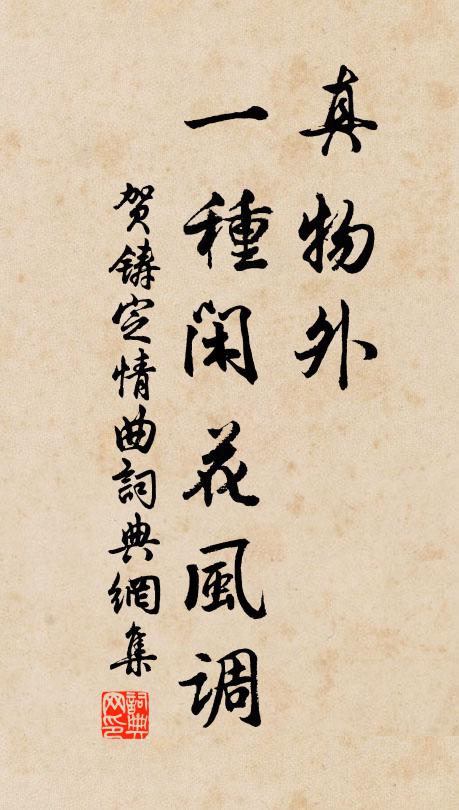 真物外
一種閑花風调
贺鑄定情曲詞典網集
詞典网印